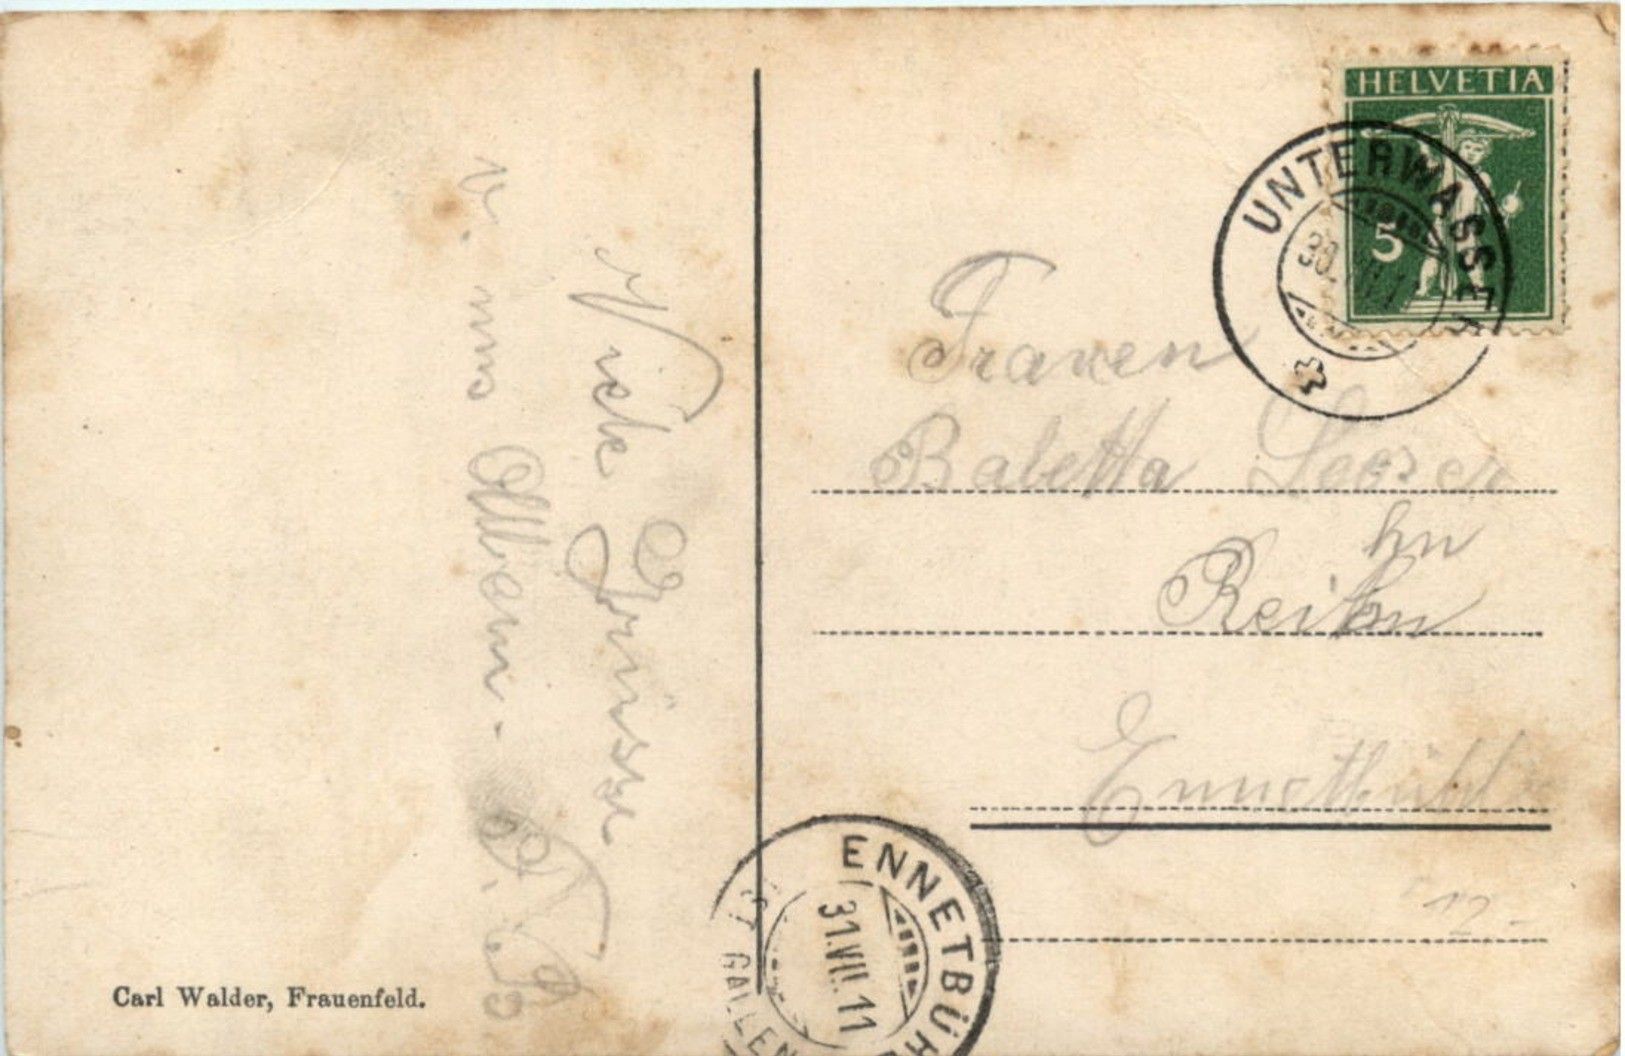 Viele Grüsse
v. uns Allen.
Carl Walder, Frauenfeld.
HELVETIA
5
UNTERWASSER
Frauen
Babetta Looser
hn
Ennetbühl
12-
ENNETBÜH
31.VII.11
ST. GALLEN